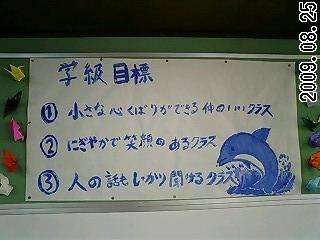 学級目標
① 小さな心くばりができる仲のいいクラス
② にぎやかで笑顔のあるクラス
③ 人の話もしっかり聞けるクラス
2009.08.25